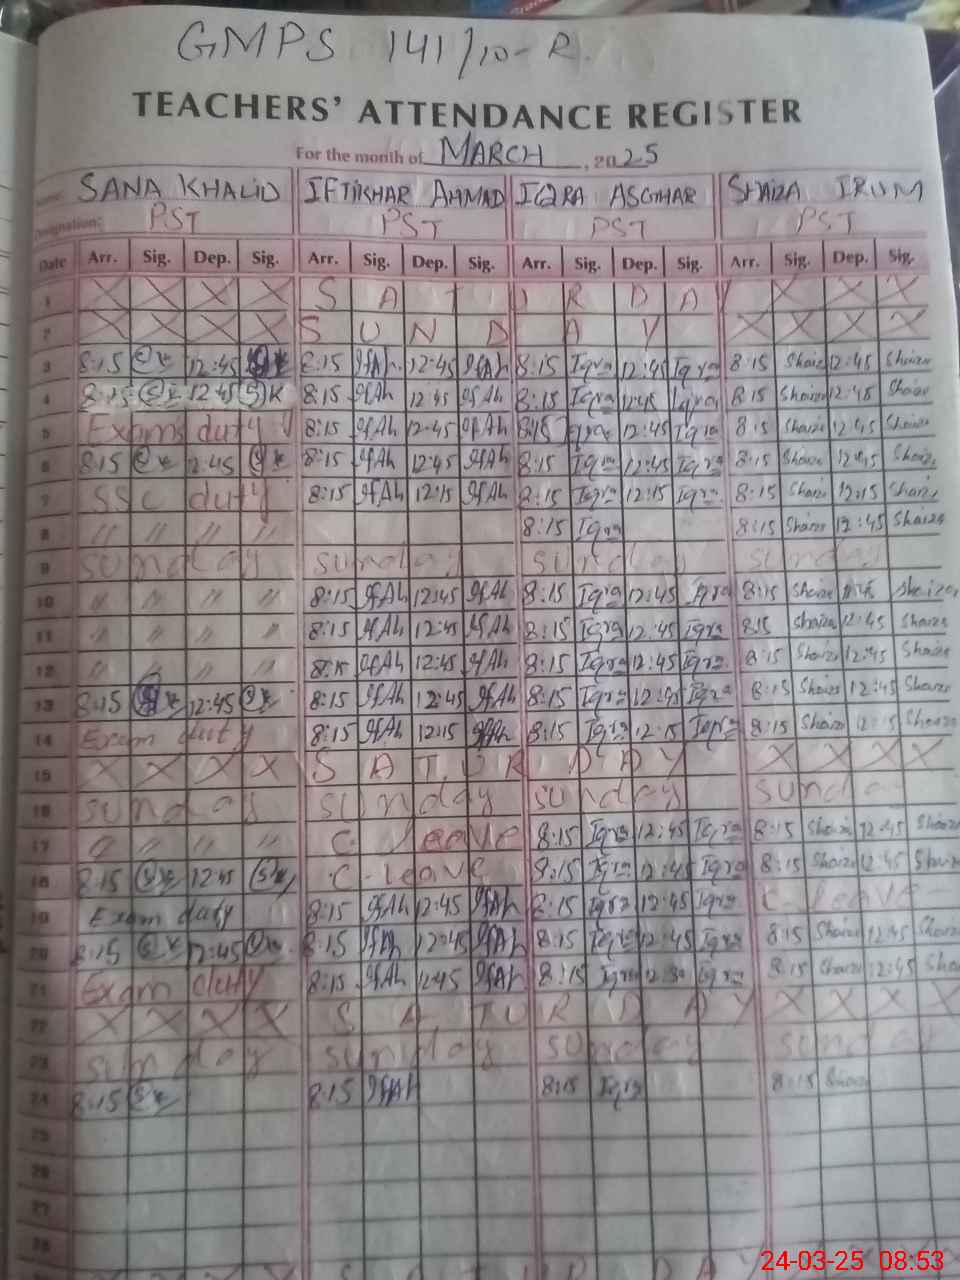 GMPS 141/10-R.
TEACHERS' ATTENDANCE REGISTER
For the month of MARCH, 2025
Name: SANA KHALID IFTIKHAR AHMAD IQRA ASGHAR SHAIZA IRUM
Designation: PST PST PST PST
Date Arr. Sig. Dep. Sig. Arr. Sig. Dep. Sig. Arr. Sig. Dep. Sig. Arr. Sig. Dep. Sig.
1 X X X X S A T U R D A Y X X X
2 X X X X S U N D A Y X X X X
3 8:15 12:45 8:15 IfAh 12:45 IfAh 8:15 Iqra 12:45 Iqra 8:15 Shaiza 12:45 Shaiza
4 8:15 SK 12:45 SK 8:15 IfAh 12:45 IfAh 8:15 Iqra 12:45 Iqra 8:15 Shaiza 12:45 Shaiza
5 Exams duty 8:15 IfAh 12:45 IfAh 8:15 Iqra 12:45 Iqra 8:15 Shaiza 12:45 Shaiza
6 8:15 12:45 8:15 IfAh 12:45 IfAh 8:15 Iqra 12:45 Iqra 8:15 Shaiza 12:45 Shaiza
7 SSC duty 8:15 IfAh 12:15 IfAh 8:15 Iqra 12:15 Iqra 8:15 Shaiza 12:15 Shaiza
8 〃 〃 〃 〃 8:15 Iqra 8:15 Shaiza 12:45 Shaiza
9 sunday sunday sunday sunday
10 〃 〃 〃 〃 8:15 IfAh 12:45 IfAh 8:15 Iqra 12:45 Iqra 8:15 Shaiza Shaiza
11 〃 〃 〃 〃 8:15 IfAh 12:45 IfAh 8:15 Iqra 12:45 Iqra 8:15 Shaiza 12:45 Shaiza
12 〃 〃 〃 〃 8:15 IfAh 12:45 IfAh 8:15 Iqra 12:45 Iqra 8:15 Shaiza 12:45 Shaiza
13 8:15 12:45 8:15 IfAh 12:45 IfAh 8:15 Iqra 12:45 Iqra 8:15 Shaiza 12:45 Shaiza
14 Exam duty 8:15 IfAh 12:15 IfAh 8:15 Iqra 12:15 Iqra 8:15 Shaiza 12:15 Shaiza
15 X X X X S A T U R D A Y X X X X
16 sunday sunday sunday sunday
17 〃 〃 〃 C. leave 8:15 Iqra 12:45 Iqra 8:15 Shaiza 12:45 Shaiza
18 8:15 SK 12:45 SK C. leave 8:15 Iqra 12:45 Iqra 8:15 Shaiza 12:45 Shaiza
19 Exam duty 8:15 IfAh 12:45 IfAh 8:15 Iqra 12:45 Iqra C. leave
20 8:15 12:45 8:15 IfAh 12:45 IfAh 8:15 Iqra 12:45 Iqra 8:15 Shaiza 12:45 Shaiza
21 Exam duty 8:15 IfAh 12:45 IfAh 8:15 Iqra 12:30 Iqra 8:15 Shaiza 12:45 Sha
22 X X X X S A T U R D A Y X X X X
23 sunday sunday sunday sunday
24 8:15 SK 8:15 IfAh 8:15 Iqra 8:15 Shaiza
25
26
27
28
24-03-25 08:53